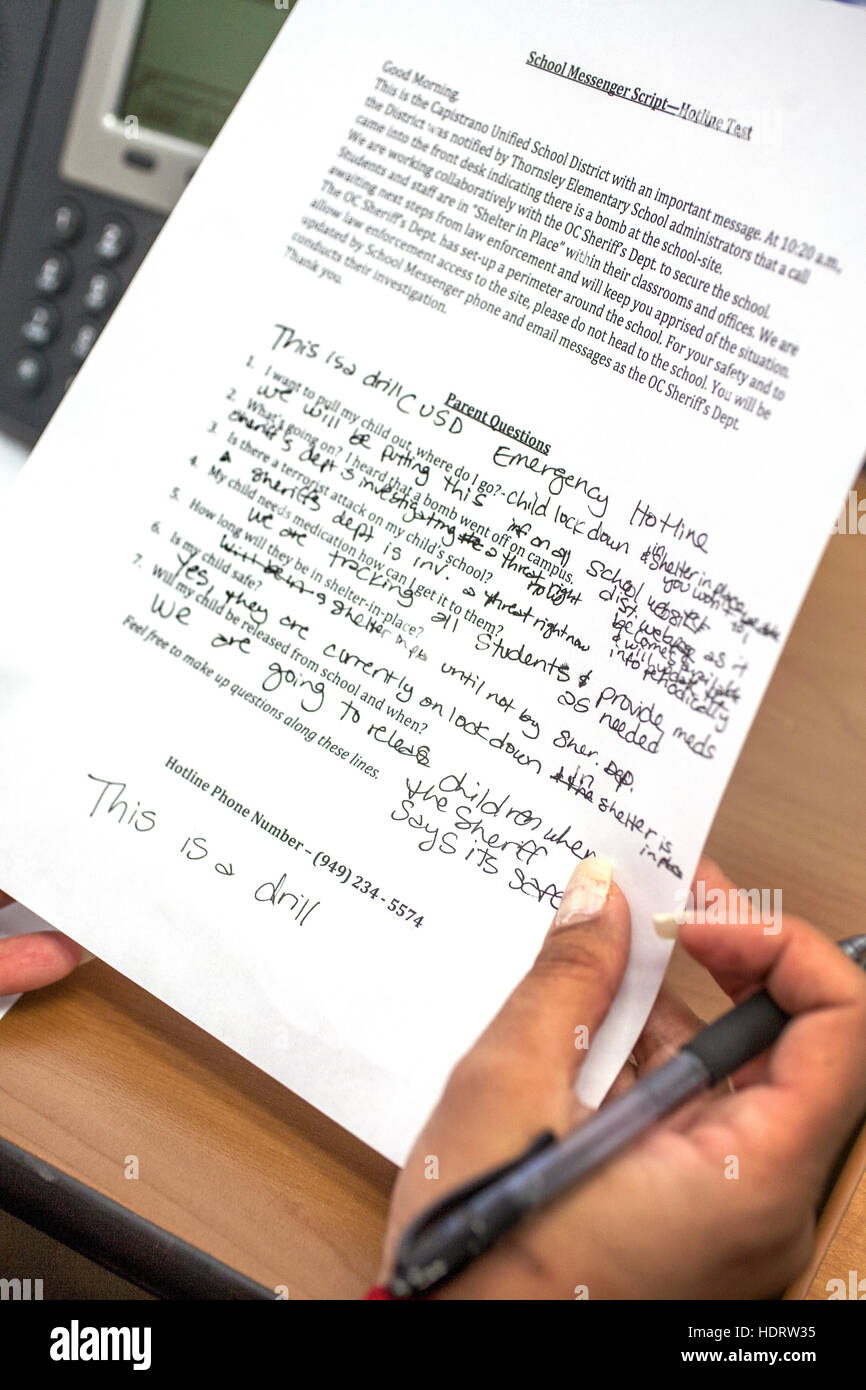 School Messenger Script—Hotline Test
Good Morning,
This is the Capistrano Unified School District with an important message. At 10:20 a.m.,
the District was notified by Thornsley Elementary School administrators that a call
came into the front desk indicating there is a bomb at the school-site.
We are working collaboratively with the OC Sheriff's Dept. to secure the school.
Students and staff are in "Shelter in Place" within their classrooms and offices. We are
awaiting next steps from law enforcement and will keep you apprised of the situation.
The OC Sheriff's Dept. has set-up a perimeter around the school. For your safety and to
allow law enforcement access to the site, please do not head to the school. You will be
updated by School Messenger phone and email messages as the OC Sheriff's Dept.
conducts their investigation.
Thank you.
This is a drill CUSD Emergency Hotline
Parent Questions
1. I want to pull my child out, where do I go? - child lockdown & shelter in place
you won't
we will be putting this info on all school website
2. What's going on? I heard that a bomb went off on campus.
dist. webpage as it
becomes available
& will update
into periodically
sheriff's dept is investigating a threat right
3. Is there a terrorist attack on my child's school?
sheriff's dept is inv. a threat right now
4. My child needs medication how can I get it to them?
we are tracking all students & provide meds
as needed
5. How long will they be in shelter-in-place?
until not by sher. dep.
6. Is my child safe?
Yes, they are currently on lockdown in shelter
in place
7. Will my child be released from school and when?
we are going to release children when
the sheriff
says its safe
Feel free to make up questions along these lines.
Hotline Phone Number – (949) 234 - 5574
This is a drill
alamy
Image ID: HDRW35
www.alamy.com